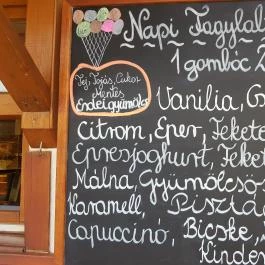 Napi Fagylal
1 gombóc 2
Tej, Tojás, Cukor
Mentes
Erdei gyümölcs
Vanilia, G
Citrom, Eper, Fekete
Epresjoghurt, Feket
Málna, Gyümölcsö
Karamell, Pisztá
Capuccinó, Bicske
Kinder